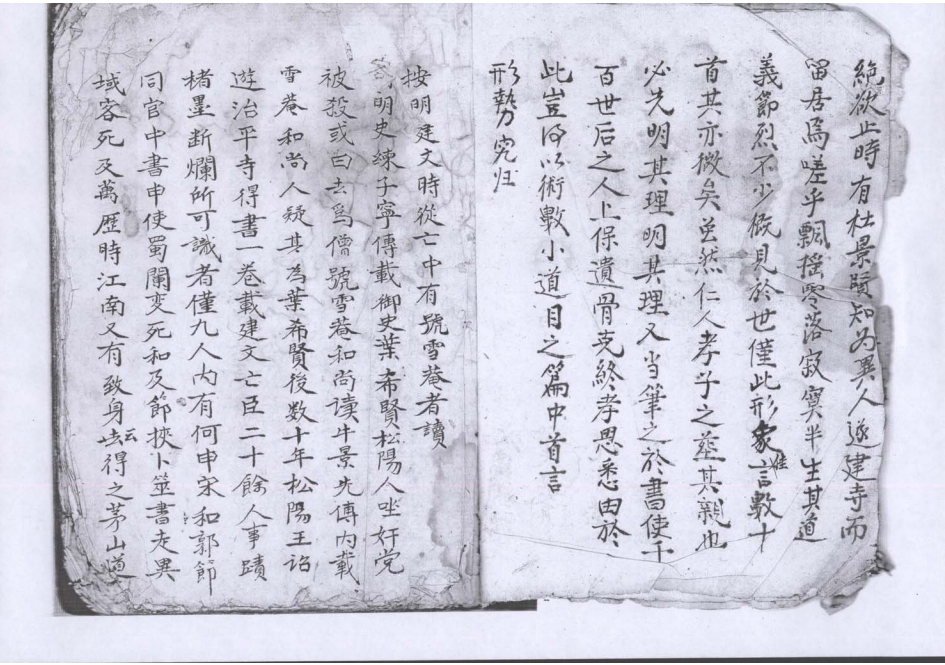 絶欲止時有杜景賢知为異人遂建寺而
留居焉嗟乎飄摇零落寂寞半生其道
義節烈不少概見於世僅此形象言數十
首其亦微矣雖然仁人孝子之葬其親也
必先明其理明其理又当筆之於書使千
百世后之人上保遺骨克終孝思悉由於
此豈得以術數小道目之篇中首言
形勢究归
按明建文時從亡中有號雪菴者讀
明史練子寧傳載御史葉希賢松陽人坐奸党
被殺或曰去爲僧號雪菴和尚读牛景先傳内載
雪菴和尚人疑其為葉希賢後数十年松陽王诏
遊治平寺得書一卷載建文亡臣二十餘人事蹟
楮墨断爛所可識者僅九人内有何申宋和郭節
同官中書申使蜀闌变死和及節挾卜筮書走異
域客死及萬歷時江南又有致身云得之茅山道